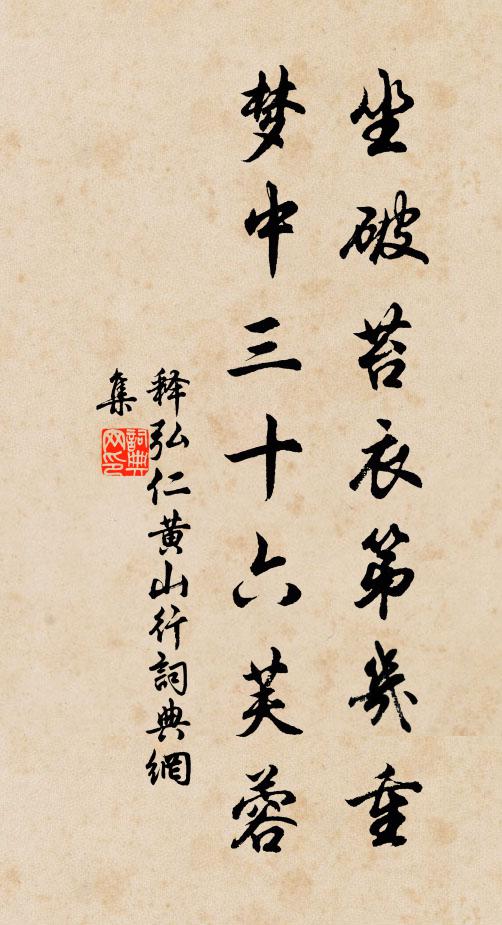 坐破苔衣第幾重
梦中三十六芙蓉
释弘仁黄山行詞典網
集
詞典网印